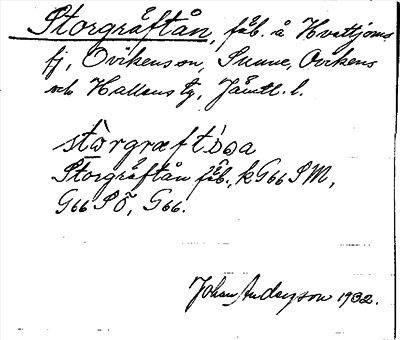 Storgråftån, fäb. å Hvattjoms
fj, Ovikenson, Sunne, Ovikens
och Hallens tg, Jämtl. l.
stòrgræft
Storgråftån fäb., k G66 S M,
G66 S Ö, G66.
Johan Anderson 1932.